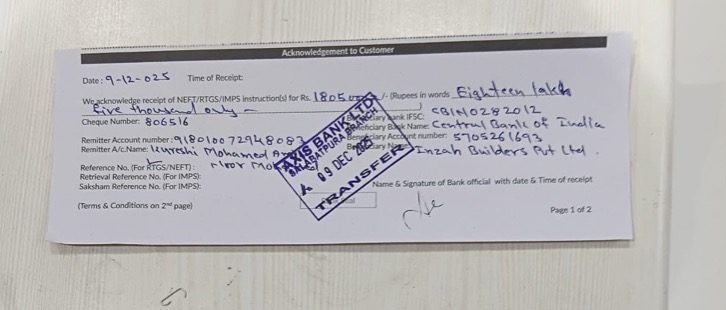 Acknowledgement to Customer
Date: 9-12-025 Time of Receipt:
We acknowledge receipt of NEFT/RTGS/IMPS instruction(s) for Rs. 1805 /- (Rupees in words Eighteen lakh
five thousand only
Cheque Number: 806516 Beneficiary Bank IFSC: CBIN0282012
Beneficiary Bank Name: Central Bank of India
Remitter Account number: 918010072948083 Beneficiary Account number: 5705261693
Remitter A/c.Name: Qureshi Mohamed Beneficiary Inzah Builders Pvt Ltd.
Reference No. (For RTGS/NEFT): Noor
Retrieval Reference No. (For IMPS):
Saksham Reference No. (For IMPS):
Name & Signature of Bank official with date & Time of receipt
(Terms & Conditions on 2nd page)
Page 1 of 2
AXIS BANK LTD.
SALABATPURA BRANCH
09 DEC 2025
TRANSFER